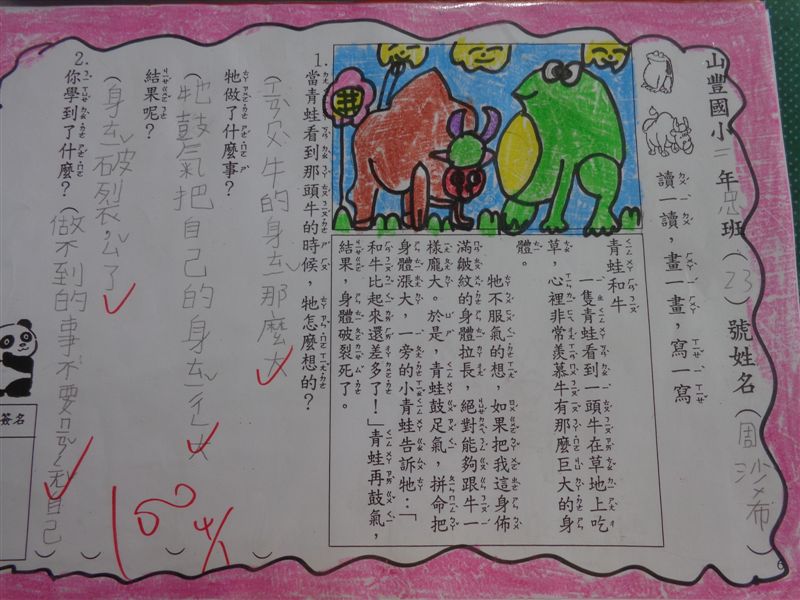 山豐國小二年忠班(23)號姓名(周沙布)
讀一讀,畫一畫,寫一寫
青蛙和牛
一隻青蛙看到一頭牛在草地上吃
草,心裡非常羨慕牛有那麼巨大的身
體。
牠不服氣的想,如果把我這身佈
滿皺紋的身體拉長,絕對能夠跟牛一
樣龐大。於是,青蛙鼓足氣,拼命把
身體漲大,一旁的小青蛙告訴牠:「
和牛比起來還差多了!」青蛙再鼓氣,
結果,身體破裂死了。
1.當青蛙看到那頭牛的時候,牠怎麼想的?
(牛的身ㄊㄧˇ那麼大)
牠做了什麼事?
(牠鼓氣把自己的身ㄊㄧˇ大)
結果呢?
(身ㄊㄧˇ破裂,ㄙˇ了)
2.你學到了什麼?(做不到的事不要自己)
100
簽名
6